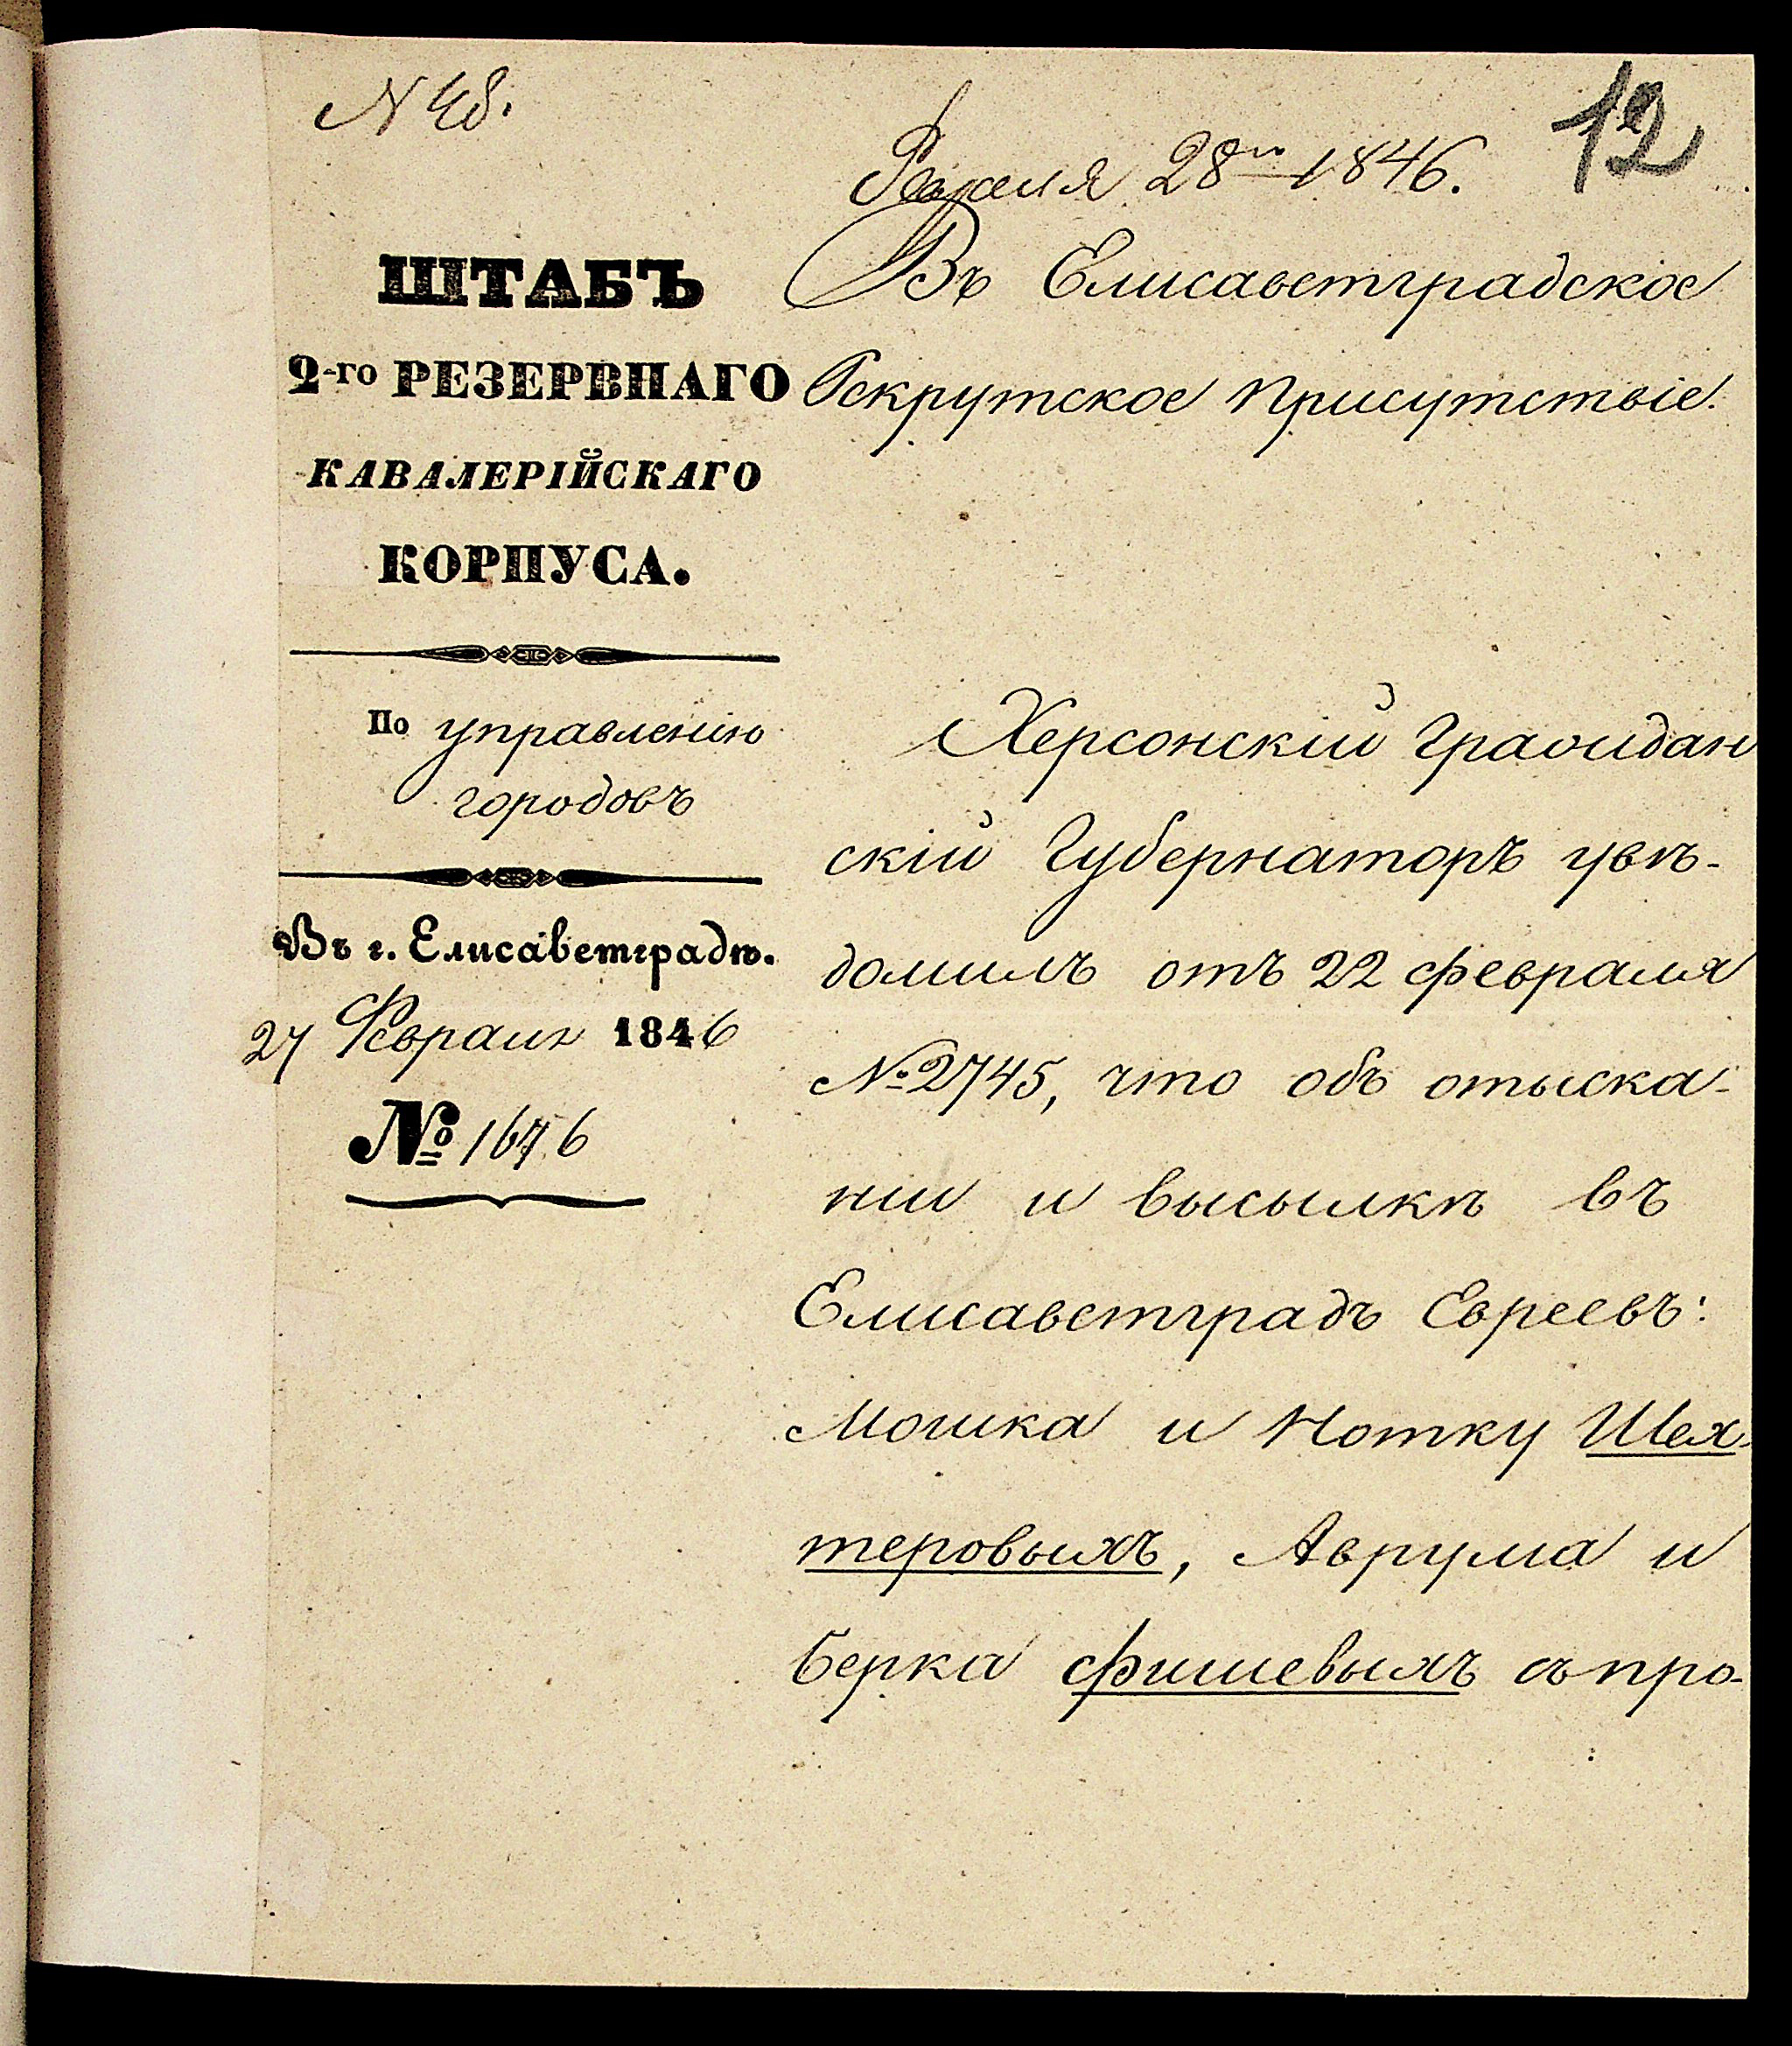 N 48.
12
Февраля 28го 1846.
ШТАБЪ
2-го РЕЗЕРВНАГО
КАВАЛЕРІЙСКАГО
КОРПУСА.
По управленію
городовъ
Въ г. Елисаветградѣ.
27 Февраля 1846
№ 1676
Въ Елисаветградское
Рекрутское Присутствіе.
Херсонскій Граждан
скій Губернаторъ увѣ-
домилъ отъ 22 февраля
№ 2745, что объ отыска-
ніи и высылкѣ въ
Елисаветградъ Евреевъ:
Мошка и Нотку Шех-
теровыхъ, Аврума и
Берка Фишевыхъ съ про-